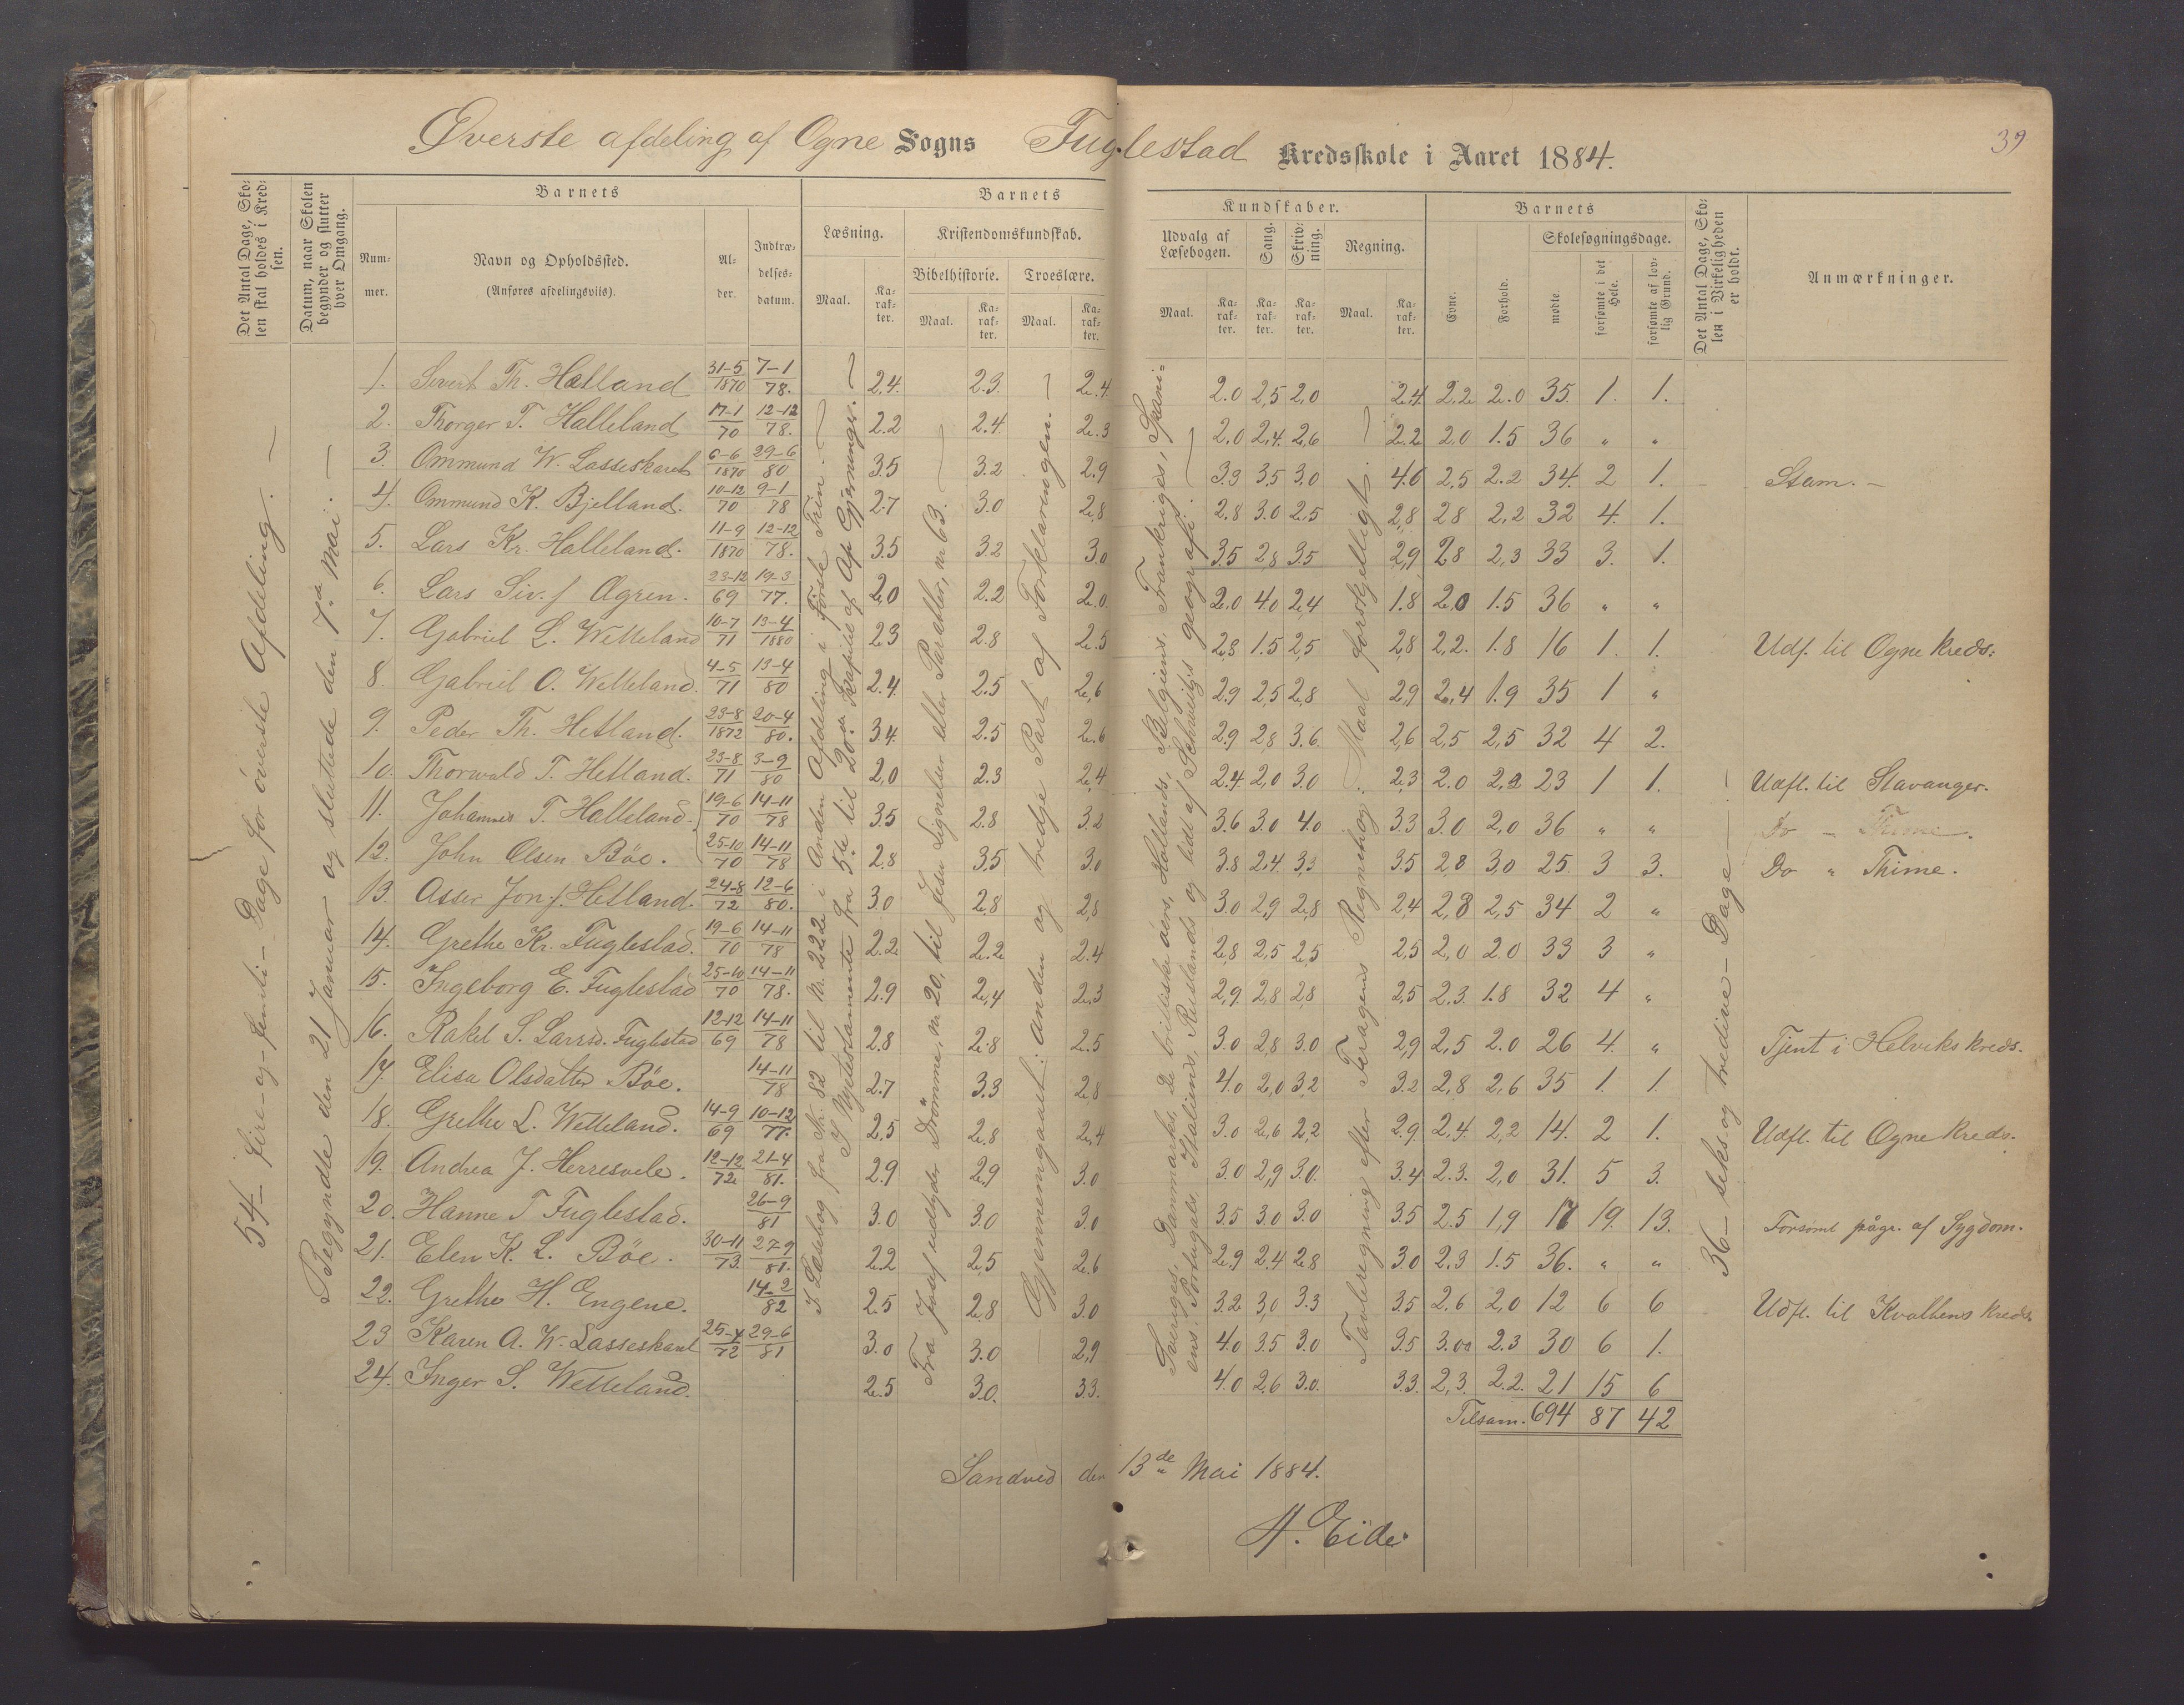 39
Øverste afdeling af Ogne Sogns Fuglestad Kredsskole i Aaret 1884.
Det Antal Dage, Skolen skal holdes i Kredsen.
Datum, naar Skolen begynder og slutter hver Omgang.
Barnets
Nummer.
Navn og Opholdssted.
(Anføres afdelingsviis).
Alder.
Indtrædelsesdatum.
Barnets Kundskaber.
Læsning.
Maal.
Karakter.
Kristendomskundskab.
Bibelhistorie.
Maal.
Karakter.
Troeslære.
Maal.
Karakter.
Udvalg af Læsebogen.
Maal.
Karakter.
Sang.
Karakter.
Skrivning.
Karakter.
Regning.
Maal.
Karakter.
Barnets
Evne.
Forhold.
Skolesøgningsdage.
mødte.
forsømte i det Hele.
forsømte af lovlig Grund.
Det Antal Dage, Skolen i Virkeligheden er holdt.
Anmærkninger.
54 – fire-og-femti – Dage for øverste Afdeling. –
Begyndte den 21 Januar og sluttede den 7de Mai. –
I Læsebog fra Nr. 82 til Nr. 222 i Anden Afdeling i Første Trin. –
I Nytestamente fra 5te til 20de Kapitel af Ap Gjerninger.
Fra Josef udtyder Drømme, nr 20, til Jesu Lignelser eller Parabler, nr 63.
Gjennemgaaet: Anden og tredje Part af Forklaringen. –
Sveriges, Danmarks, De brittiske øers, Hollands, Belgiens, Frankriges, Spaniens, Portugals, Italiens, Ruslands og lidt af Schweitz's geografi.
Tavleregning efter Feragens Regnebog. Maal forskjelligt.
36 – seks og tredive – Dage –
1. Sivert Th. Hatland 31-5 1870 7-1 78. 2.4. 2.3 2.4 2.0 2,5 2,0 2.4 2.2 2.0 35. 1. 1.
2. Thorger T. Halleland 17-1 70 12-12 78. 2.2 2.4 2.3 2,0 2,4 2,6 2.2 2,0 1.5 36 " "
3. Ommund W. Lasseskaret 6-6 1870 29-6 80 3.5 3.2 2.9 3.3 3.5 3.0 4.0 2.5 2.2 34. 2 1. Stam. –
4. Ommund K. Bjelland. 10-12 70 9-1 78 2.7 3.0 2,8 2.8 3.0 2,5 2,8 2.8 2.2 32 4. 1.
5. Lars Kr. Halleland. 11-9 1870 12-12 78. 3.5 3.2 3.0 3.5 2,8 3.5 2,9 2.8 2,3 33 3. 1.
6. Lars Siv.s. Ogren. 23-12 69 19-3 77. 2,0 2.2 2.0 2.0 4.0 2,4 1.8 2.0 1.5 36 " "
7. Gabriel L. Wetteland 10-7 71 13-4 1880 2.3 2.8 2.5 2,8 1.5 2,5 2,8 2,2. 1.8 16 1. 1. Udf. til Ogne kreds.
8. Gabriel O. Wetteland. 4-5 71 13-4 80 2.4 2.5 2,6 2.9 2,5 2,8 2,9 2,4 1.9 35 1 "
9. Peder Th. Hetland. 23-8 1872 20-4 80. 3.4. 2.5 2.6 2.9 2,8 3.6 2,6 2,5 2,5 32 4 2.
10. Thorvald T. Hetland. 23-8 71 3-9 80 2,0 2.3 2,4 2.4 2,0 3.0 2.3 2.0 2.2 23 1 1. Udfl. til Stavanger.
11. Johannes T. Halleland. 19-6 70 14-11 78 3.5 2.8 3.2 3.6 3.0 4.0 3.3 3.0 2,0 36 " " Do – Thime.
12. John Olsen Böe. 25-10 70 14-11 78 2.8 3.5 3.0 3.8 2.4 3,3 3.5 2,8 3,0 25. 3 3. Do " Thime.
13. Asser Jon.s. Hetland. 24-8 72 12-6 80. 3.0 2,8 2,8 3.0 2,9 2,8 2,4 2,8 2,5 34 2 "
14. Grethe Kr. Fuglestad. 19-6 70 14-11 78 2.2 2.2 2.4 2,8 2,5 2,5 2.5 2,0 2.0 33 3 "
15. Ingeborg E. Fuglestad 25-10 70 14-11 78. 2.9 2,4 2,3 2,9 2,8 2,8 2,5 2.3. 1.8 32 4 "
16. Rakel S. Larsd. Fuglestad 12-12 69 14-11 78 2.8 2.8 2.5 3.0 2,8 3.0 2,9 2,5 2.0 26 4. " Tjent i Helviks kreds.
17. Elisa Olsdatter Böe. 14-11 78 2.7 3.3 2,8 4.0 2,0 3,2 3.2 2,8 2,6 35 1. 1.
18. Grethe L. Wetteland. 14-9 69 10-12 77. 2,5 2,8 2,4 3.0 2,6 2,2 2.9 2.4. 2,2 14. 2 1. Udfl. til Ogne kreds.
19. Andrea J. Herresvele. 12-12 72 21-4 81. 2.9 2,9 3.0 3.0 2,9 3.0. 3.4 2.3. 2,0 31. 5 3.
20. Hanne T Fuglestad. 26-9 81 3.0 3.0 3.0 3.5 3.0 3.0 3.5 2.5 1,9 17 19. 13. Forsömt pågr. af Sygdom.
21. Elen K. L. Böe. 30-11 73. 27-9 81. 2.2 2,5 2.6 2.9 2.4 2,8 3.0 2.3 1.5 36. " "
22. Grethe H. Engene. 14-2 82 2.5 2,8 3.0 3.2 3,0 3.3 3.5 2.6 2,0 12 6 6 Udfl. til Kvalbens kreds.
23 Karen A. W. Lasseskaret 25-4 72 29-6 81 3.0 3.0 2,9 4.0 3.5 3.0 3.5 3.00 2.3 30 6 1.
24. Inger S. Wetteland. 2.5 3.0. 3.3. 4.0 2,6 3.0. 3.3. 2,3. 2.2. 21 15 6
Tilsam. 694 87 42
Sandved den 13de Mai 1884.
A. Eide